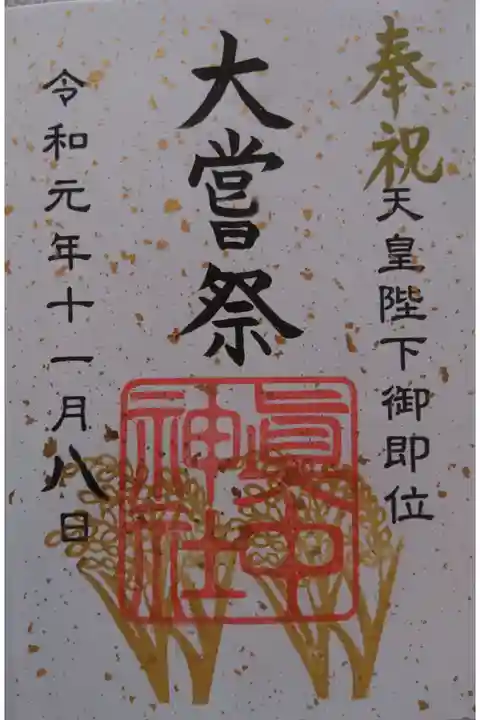 奉祝
天皇陛下御即位
大嘗祭
眞中
神社
令和元年十一月八日